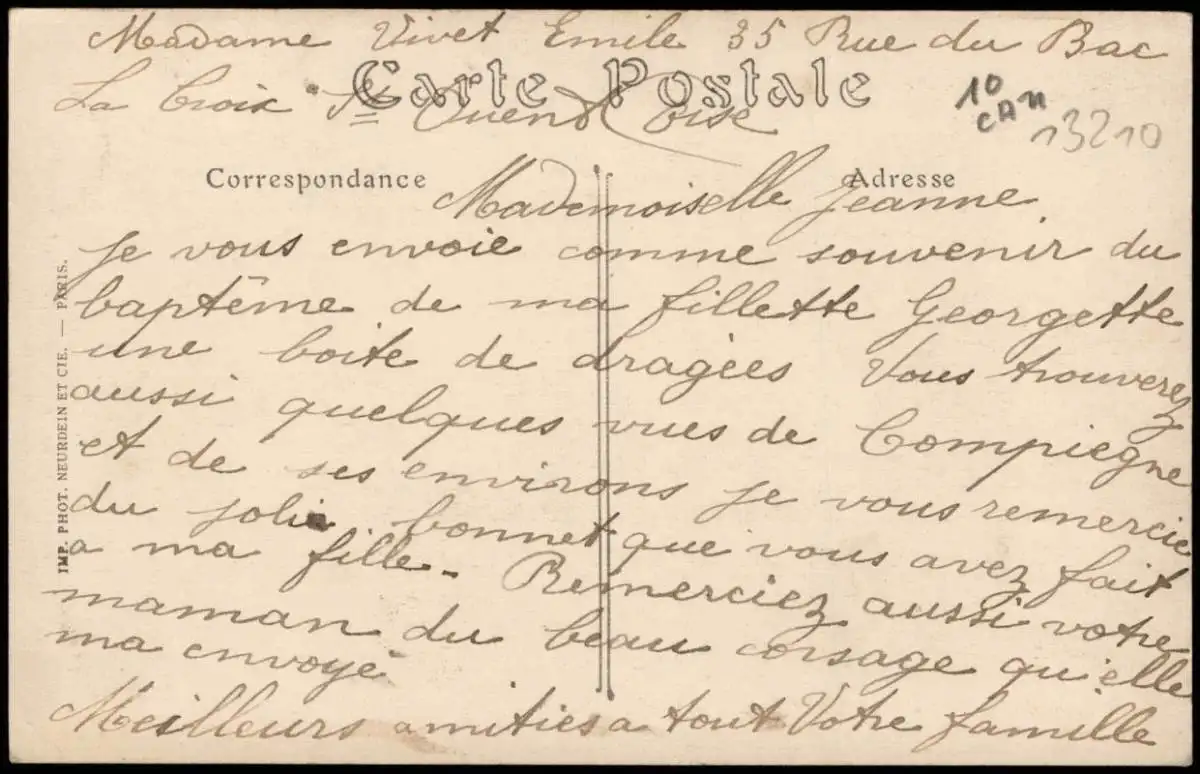 Madame Vivet Emile 35 Rue du Bac
Carte Postale
La Croix St Ouen Oise
10
CAN
13210
Correspondance
Adresse
Mademoiselle Jeanne
Je vous envoie comme souvenir du
baptême de ma fillette Georgette
une boite de dragées Vous trouverez
aussi quelques vues de Compiegne
et de ses environs je vous remercie
du joli bonnet que vous avez fait
a ma fille - Remerciez aussi votre
maman du beau corsage qu'elle
ma envoyé
Meilleurs amitiés a tout Votre famille
IMP. PHOT. NEURDEIN ET CIE. — PARIS.